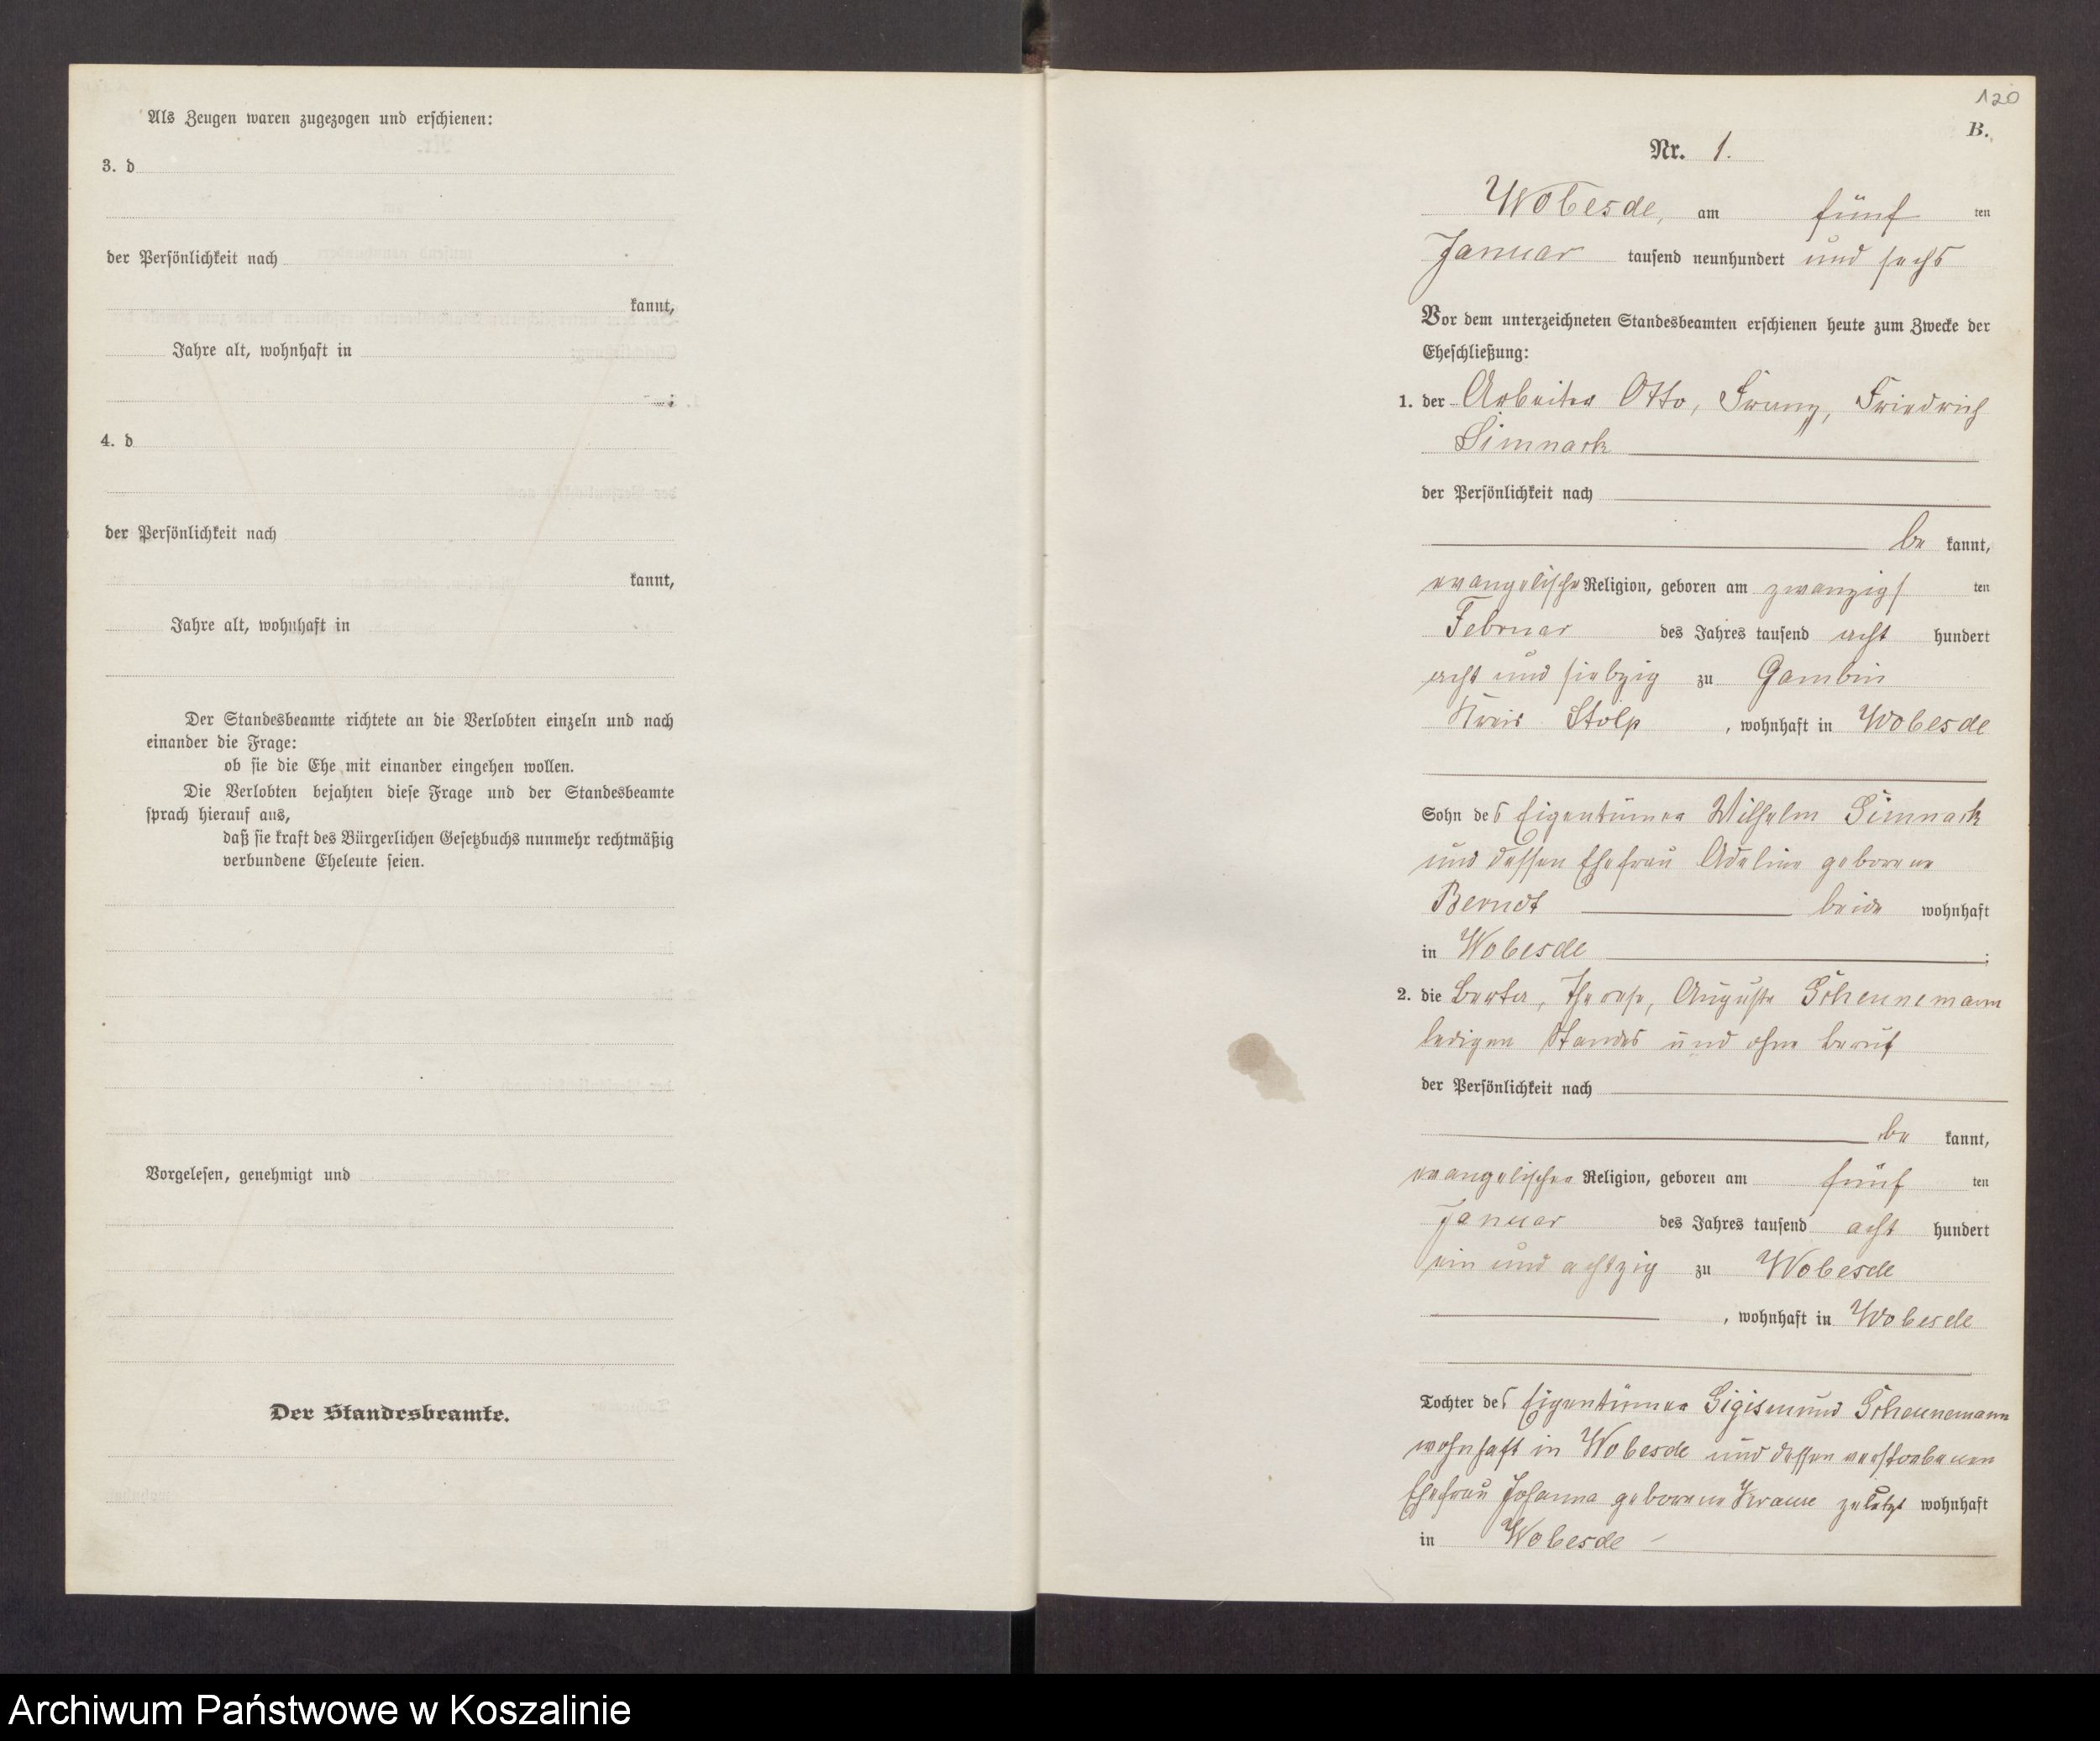 Als Zeugen waren zugezogen und erschienen:
3. d
der Persönlichkeit nach
kannt,
Jahre alt, wohnhaft in
;
4. d
der Persönlichkeit nach
kannt,
Jahre alt, wohnhaft in
Der Standesbeamte richtete an die Verlobten einzeln und nach
einander die Frage:
ob sie die Ehe mit einander eingehen wollen.
Die Verlobten bejahten diese Frage und der Standesbeamte
sprach hierauf aus,
daß sie kraft des Bürgerlichen Gesetzbuchs nunmehr rechtmäßig
verbundene Eheleute seien.
Vorgelesen, genehmigt und
Der Standesbeamte.
120
B.
Nr. 1.
Wobesde, am fünf ten
Januar tausend neunhundert und sechs
Vor dem unterzeichneten Standesbeamten erschienen heute zum Zwecke der
Eheschließung:
1. der Arbeiter Otto, Franz, Friedrich
Simnack
der Persönlichkeit nach
be kannt,
evangelische Religion, geboren am zwanzigs ten
Februar des Jahres tausend acht hundert
acht und siebzig zu Gambin
Kreis Stolp, wohnhaft in Wobesde
Sohn des Eigentümer Wilhelm Simnack
und dessen Ehefrau Adeline geborene
Berndt beide wohnhaft
in Wobesde ;
2. die Berta, Therese, Auguste Scheunemann
ledigen Standes und ohne Beruf
der Persönlichkeit nach
be kannt,
evangelischer Religion, geboren am fünf ten
Januar des Jahres tausend acht hundert
ein und achtzig zu Wobesde
, wohnhaft in Wobesde
Tochter des Eigentümer Sigismund Scheunemann
wohnhaft in Wobesde und dessen verstorbenen
Ehefrau Johanna geborene Krause zuletzt wohnhaft
in Wobesde
Archiwum Państwowe w Koszalinie